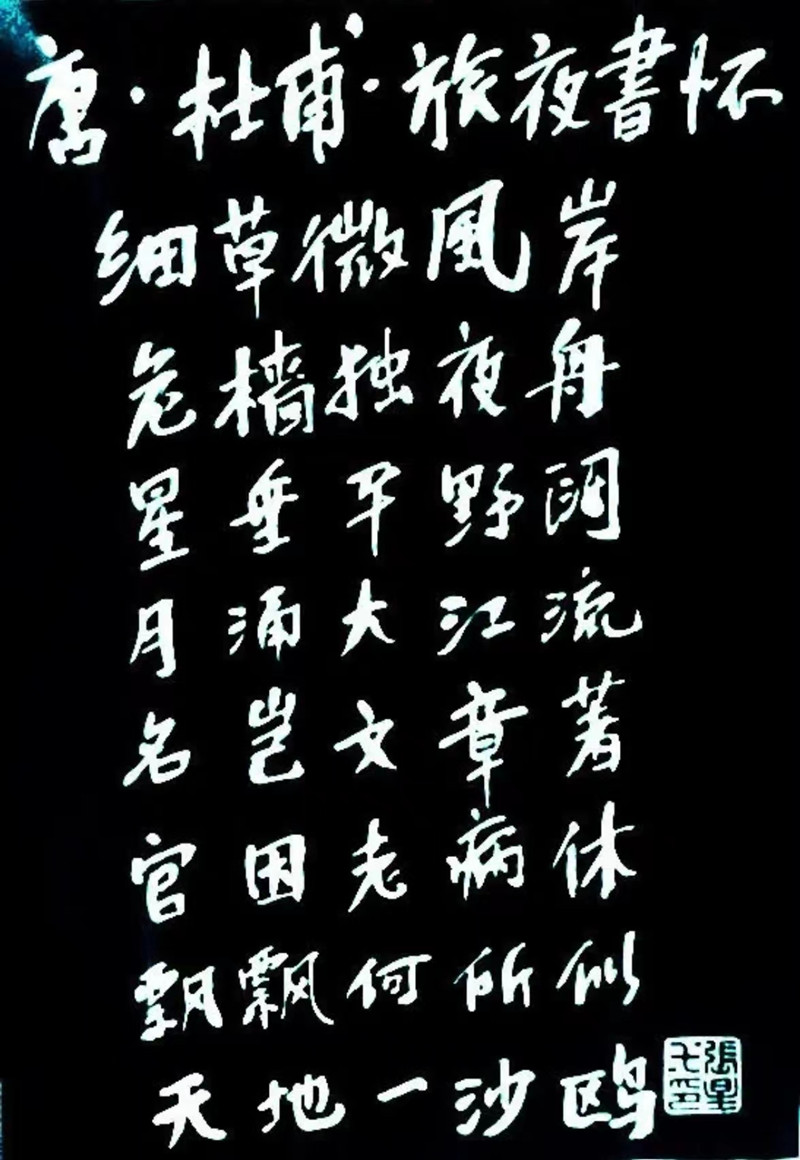 唐·杜甫·旅夜書怀
细草微風岸
危樯独夜舟
星垂平野阔
月涌大江流
名岂文章著
官因老病休
飘飘何所似
天地一沙鸥